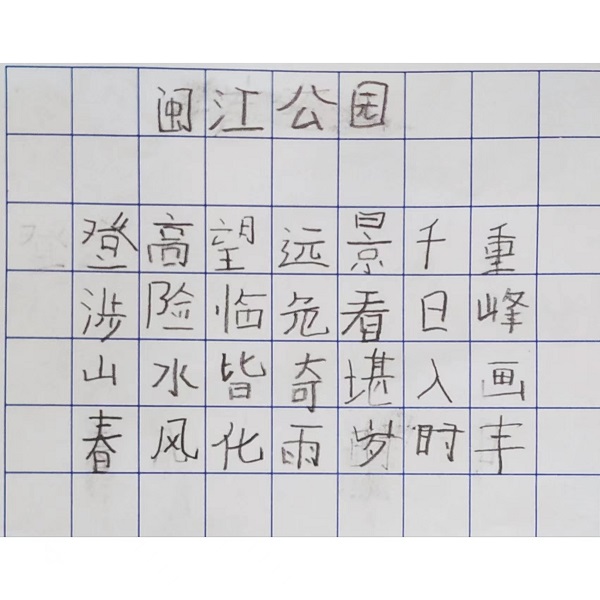 闽江公园
登高望远景千重
涉险临危看日峰
山水皆奇堪入画
春风化雨岁时丰